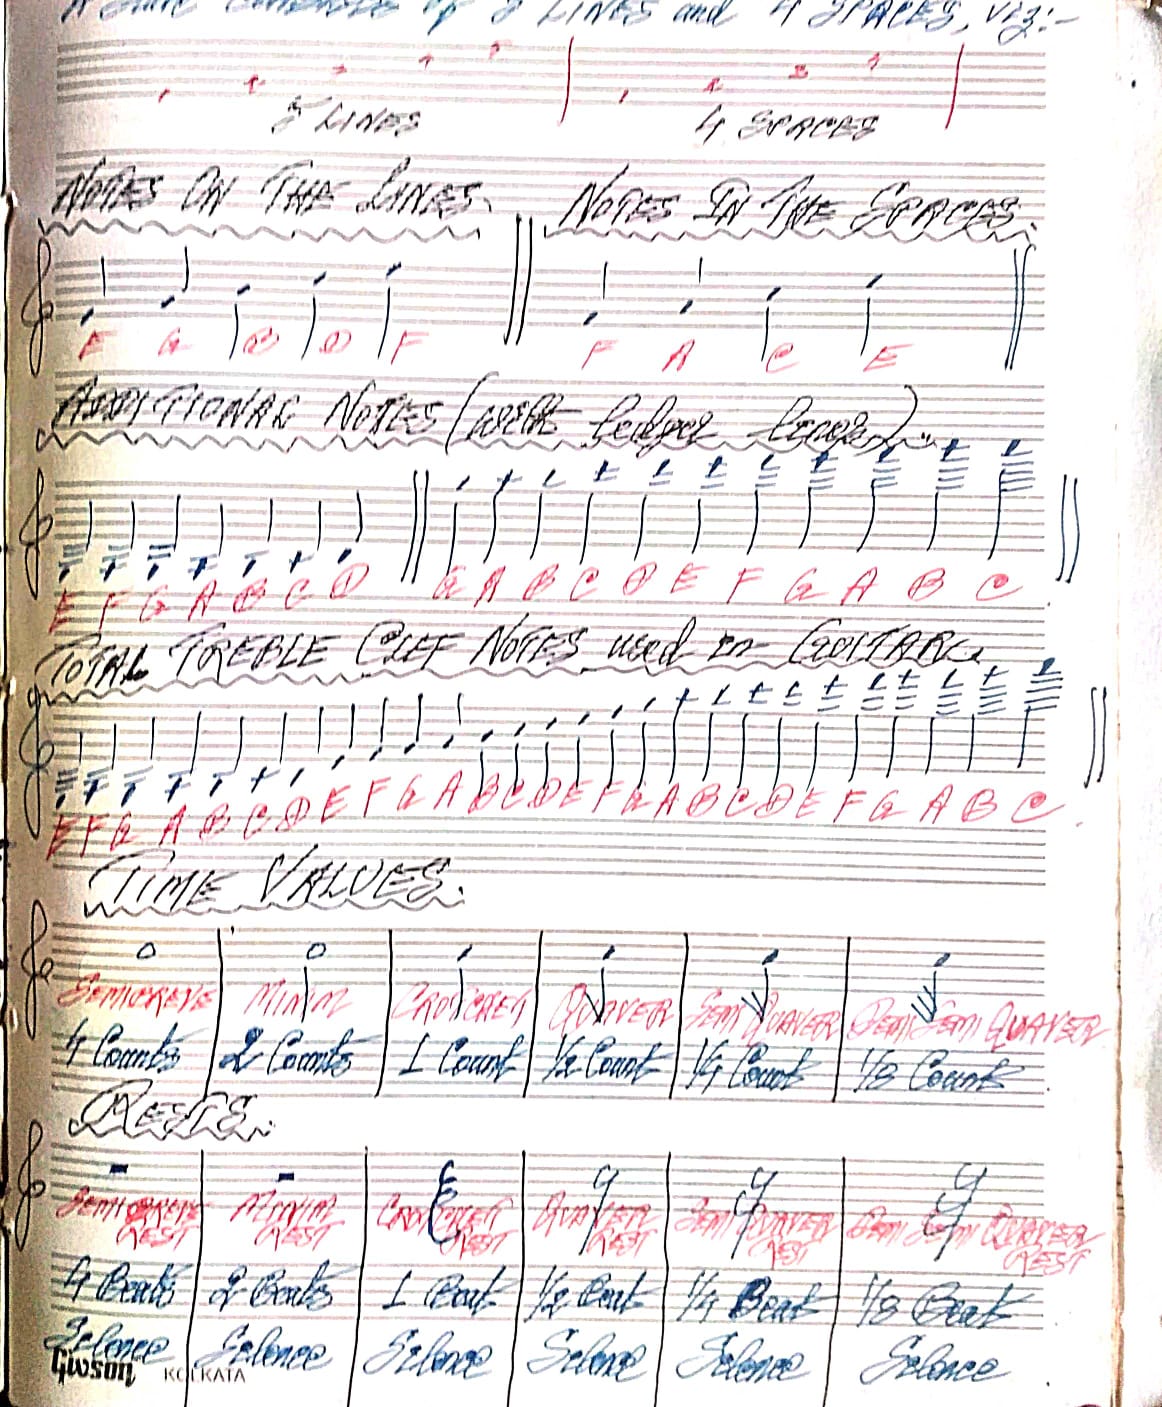 A Stave consists of 5 LINES and 4 SPACES, viz:-
5 LINES 4 SPACES
NOTES ON THE LINES. NOTES IN THE SPACES.
E G B D F F A C E
ADDITIONAL NOTES (with ledger lines).
E F G A B C D G A B C D E F G A B C
TOTAL TREBLE CLEF NOTES used in GUITAR.
E F G A B C D E F G A B C D E F G A B C D E F G A B C
TIME VALUES.
SEMIBREVE MINIM CROTCHET QUAVER SEMI QUAVER DEMI SEMI QUAVER
4 Counts 2 Counts 1 Count 1/2 Count 1/4 Count 1/8 Count
RESTS.
SEMIBREVE REST MINIM REST CROTCHET REST QUAVER REST SEMI QUAVER REST DEMI SEMI QUAVER REST
4 Beats 2 Beats 1 Beat 1/2 Beat 1/4 Beat 1/8 Beat
Silence Silence Silence Silence Silence Silence
Gwson KOLKATA